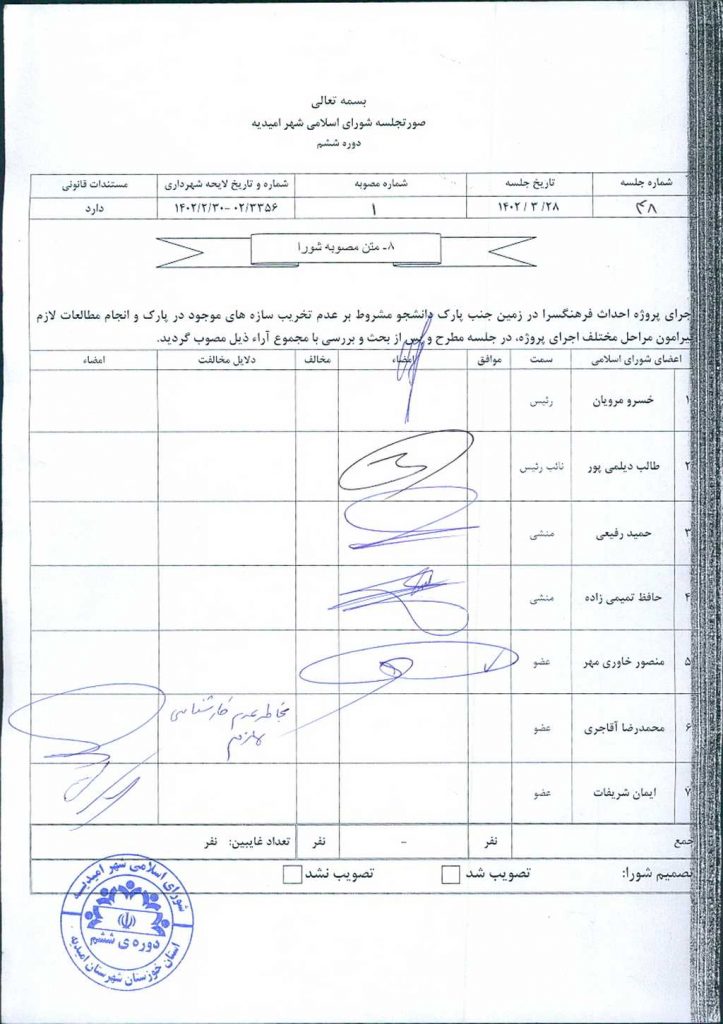 بسمه تعالی
صورتجلسه شورای اسلامی شهر امیدیه
دوره ششم
شماره جلسه تاریخ جلسه شماره مصوبه شماره و تاریخ لایحه شهرداری مستندات قانونی
۴۸ ۱۴۰۲ / ۳ /۲۸ ۱ ۰۲/۳۳۵۶ -۱۴۰۲/۲/۳۰ دارد
۸- متن مصوبه شورا
جرای پروژه احداث فرهنگسرا در زمین جنب پارک دانشجو مشروط بر عدم تخریب سازه های موجود در پارک و انجام مطالعات لازم
یرامون مراحل مختلف اجرای پروژه، در جلسه مطرح و پس از بحث و بررسی با مجموع آراء ذیل مصوب گردید.
اعضای شورای اسلامی سمت موافق امضاء مخالف دلایل مخالفت امضاء
۱ خسرو مرویان رئیس
۲ طالب دیلمی پور نائب رئیس
۳ حمید رفیعی منشی
۴ حافظ تمیمی زاده منشی
۵ منصور خاوری مهر عضو
۶ محمدرضا آقاجری عضو
عدم کارشناسی
۷ ایمان شریفات عضو
جمع نفر - نفر تعداد غایبین: نفر
تصمیم شورا: تصویب شد تصویب نشد
شورای اسلامی شهر امیدیه
دوره ی ششم
استان خوزستان شهرستان امیدیه